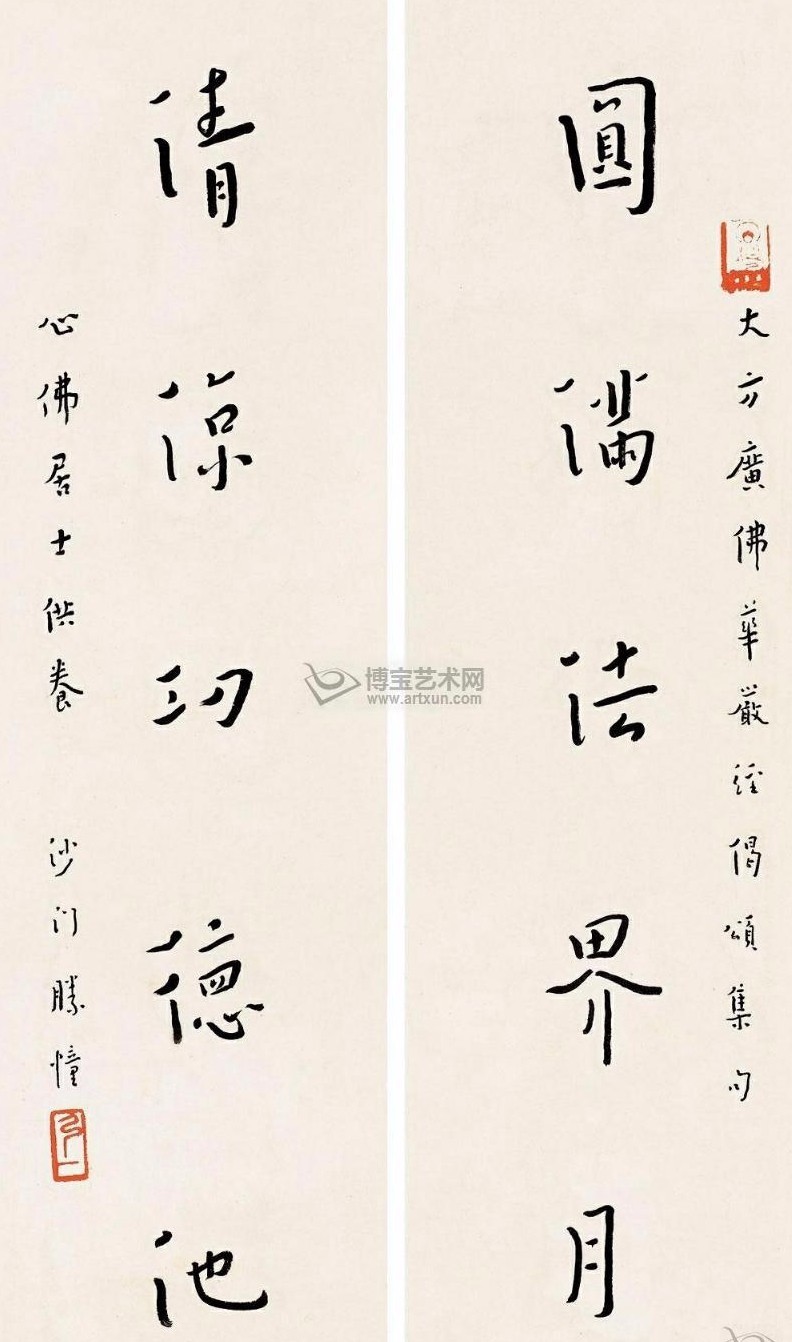 大方廣佛華嚴經偈頌集句
圓滿法界月
清涼功德池
心佛居士供養 沙门勝幢
博宝艺术网
www.artxun.com